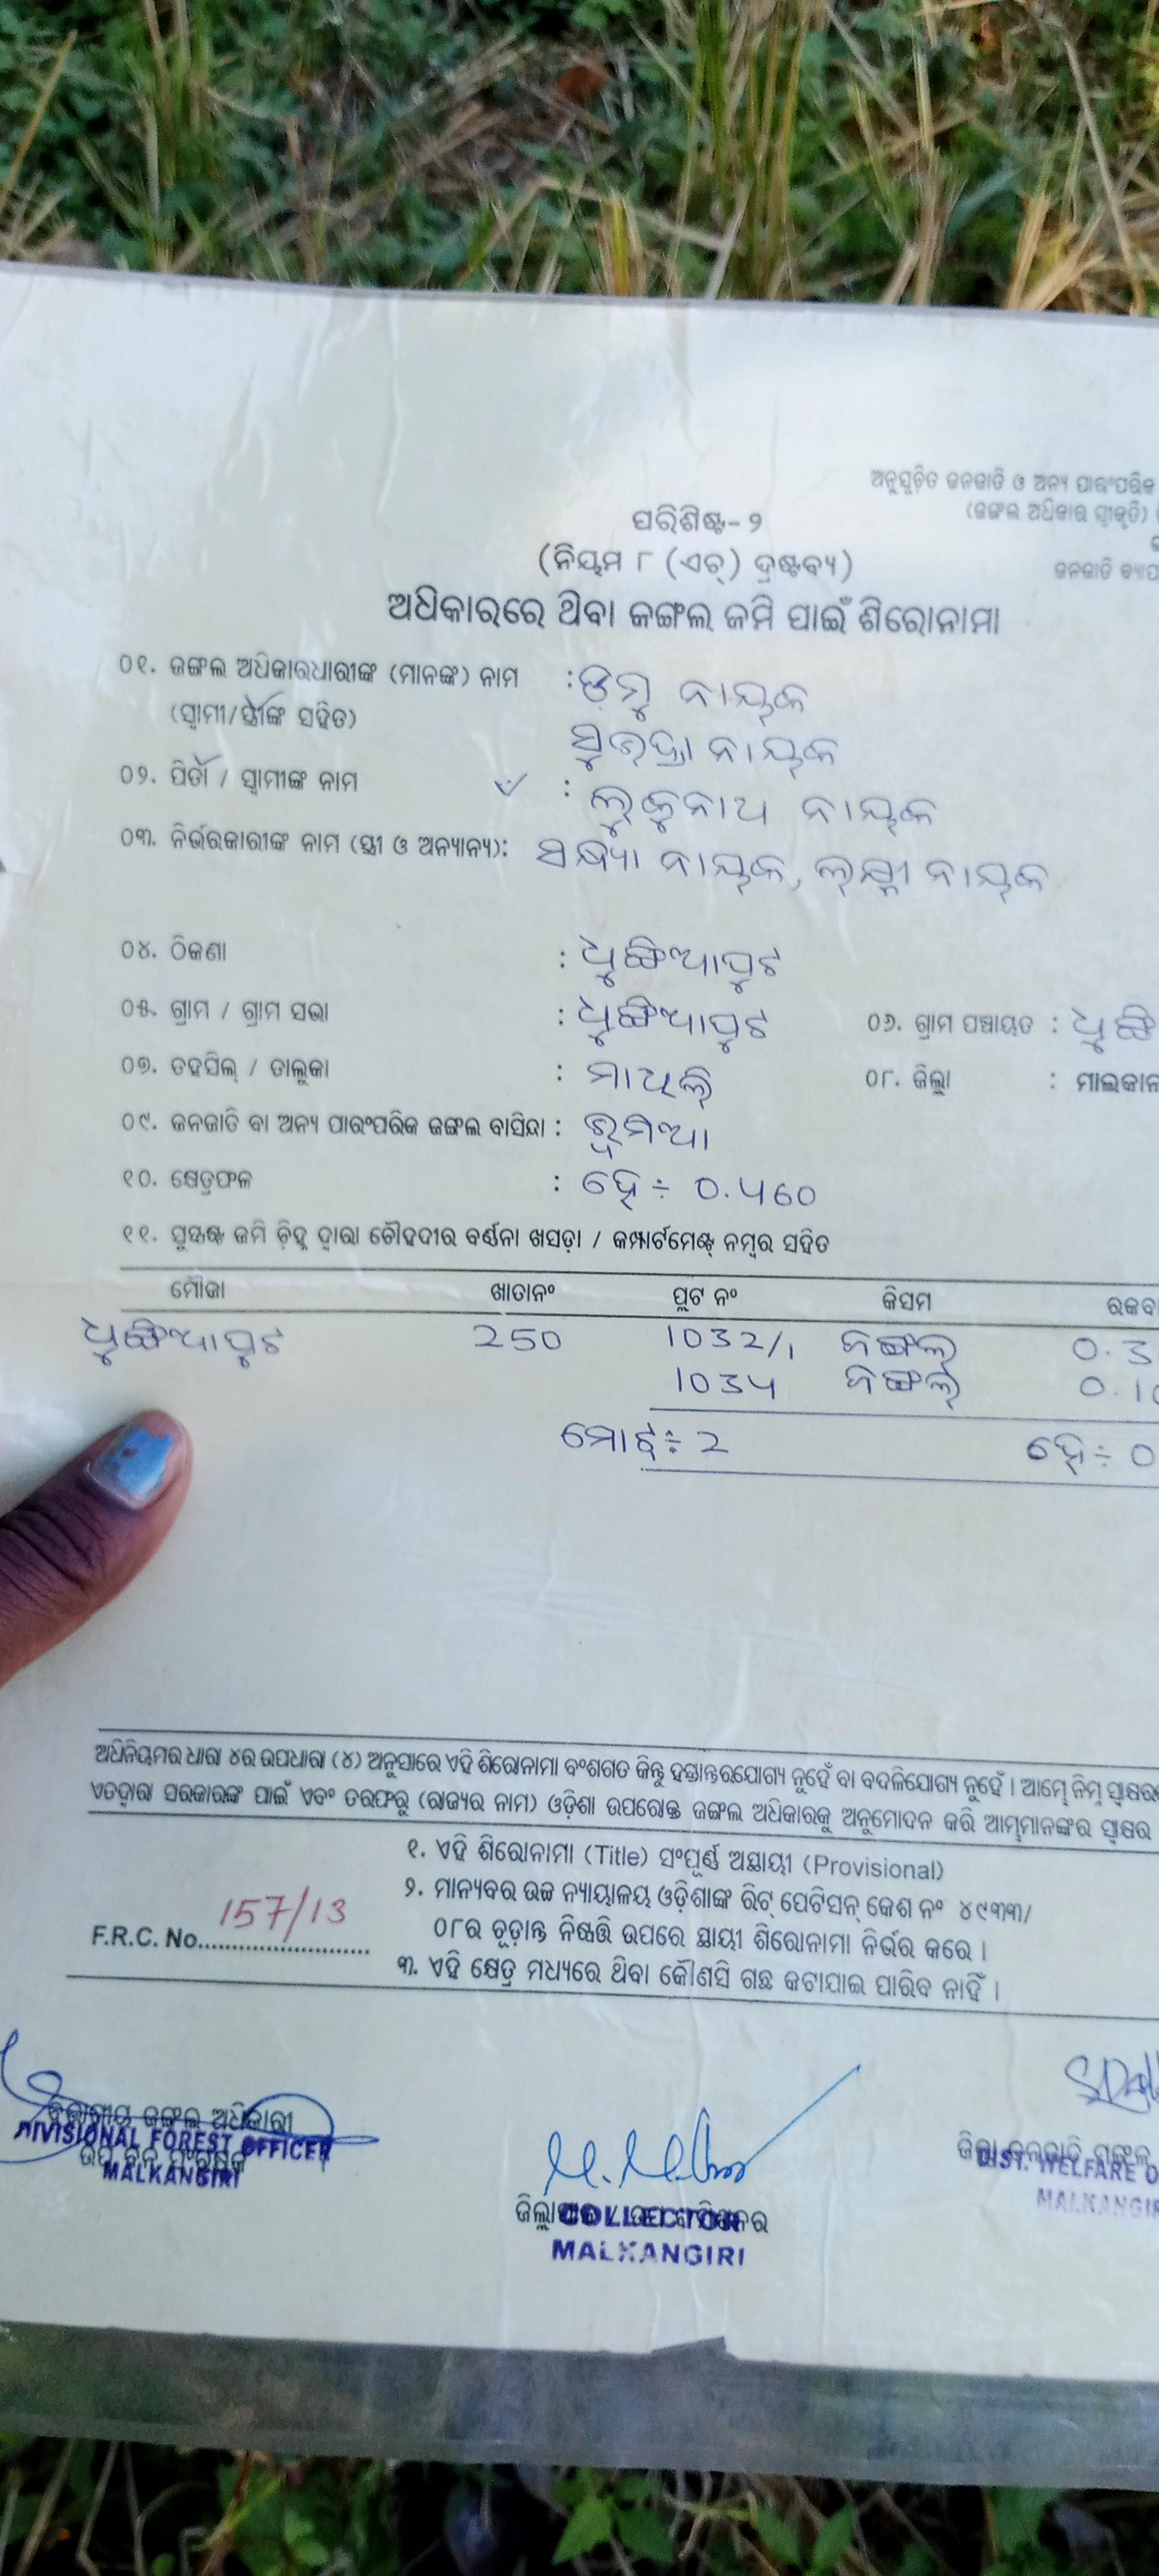 ଅନୁସୂଚିତ ଜନଜାତି ଓ ଅନ୍ୟ ପାରଂପରିକ
(ଜଙ୍ଗଲ ଅଧିକାର ସ୍ୱୀକୃତି)
ଜନଜାତି
ପରିଶିଷ୍ଟ- ୨
(ନିୟମ ୮ (ଏଚ୍) ଦ୍ରଷ୍ଟବ୍ୟ)
ଅଧିକାରରେ ଥିବା ଜଙ୍ଗଲ ଜମି ପାଇଁ ଶିରୋନାମା
୦୧. ଜଙ୍ଗଲ ଅଧିକାରଧାରୀଙ୍କ (ମାନଙ୍କ) ନାମ : ଡମୁ ନାୟକ
(ସ୍ୱାମୀ/ସ୍ତ୍ରୀଙ୍କ ସହିତ) ନାୟକ
୦୨. ପିତା / ସ୍ୱାମୀଙ୍କ ନାମ : ନାୟକ
୦୩. ନିର୍ଭରକାରୀଙ୍କ ନାମ (ସ୍ତ୍ରୀ ଓ ଅନ୍ୟାନ୍ୟ): ସନ୍ଧ୍ୟା ନାୟକ, ଲକ୍ଷ୍ମୀ ନାୟକ
୦୪. ଠିକଣା :
୦୫. ଗ୍ରାମ / ଗ୍ରାମ ସଭା : ୦୬. ଗ୍ରାମ ପଞ୍ଚାୟତ :
୦୭. ତହସିଲ୍ / ତାଲୁକା : ମାଥିଲି ୦୮. ଜିଲ୍ଲା : ମାଲକାନ
୦୯. ଜନଜାତି ବା ଅନ୍ୟ ପାରଂପରିକ ଜଙ୍ଗଲ ବାସିନ୍ଦା : ଭୂମିଆ
୧୦. କ୍ଷେତ୍ରଫଳ : ହେ÷ 0.460
୧୧. ସୁସ୍ପଷ୍ଟ ଜମି ଚିହ୍ନ ଦ୍ୱାରା ଚୌହଦୀର ବର୍ଣ୍ଣନା ଖସଡ଼ା / କମ୍ପାର୍ଟମେଣ୍ଟ୍ ନମ୍ବର ସହିତ
ମୌଜା ଖାତାନଂ ପ୍ଲଟ ନଂ କିସମ ରକବା
250 1032/1 ଜଙ୍ଗଲ 0.3
1034 ଜଙ୍ଗଲ 0.10
ମୋଟ÷ 2 ହେ÷ 0
ଅଧିନିୟମର ଧାରା ୪ର ଉପଧାରା (୪) ଅନୁସାରେ ଏହି ଶିରୋନାମା ବଂଶଗତ କିନ୍ତୁ ହସ୍ତାନ୍ତରଯୋଗ୍ୟ ନୁହେଁ ବା ବଦଳିଯୋଗ୍ୟ ନୁହେଁ । ଆମ୍ଭେ ନିମ୍ନ ସ୍ୱାକ୍ଷର
ଏତଦ୍ୱାରା ସରକାରଙ୍କ ପାଇଁ ଏବଂ ତରଫରୁ (ରାଜ୍ୟର ନାମ) ଓଡ଼ିଶା ଉପରୋକ୍ତ ଜଙ୍ଗଲ ଅଧିକାରକୁ ଅନୁମୋଦନ କରି ଆମ୍ଭମାନଙ୍କର ସ୍ୱାକ୍ଷର
୧. ଏହି ଶିରୋନାମା (Title) ସଂପୂର୍ଣ୍ଣ ଅସ୍ଥାୟୀ (Provisional)
୨. ମାନ୍ୟବର ଉଚ୍ଚ ନ୍ୟାୟାଳୟ ଓଡ଼ିଶାଙ୍କ ରିଟ୍ ପେଟିସନ୍ କେଶ ନଂ ୪୯୩୩/
୦୮ର ଚୂଡ଼ାନ୍ତ ନିଷ୍ପତ୍ତି ଉପରେ ସ୍ଥାୟୀ ଶିରୋନାମା ନିର୍ଭର କରେ ।
F.R.C. No. 157/13
୩. ଏହି କ୍ଷେତ୍ର ମଧ୍ୟରେ ଥିବା କୌଣସି ଗଛ କଟାଯାଇ ପାରିବ ନାହିଁ ।
ଜଙ୍ଗଲ ଅଧିକାରୀ
DIVISIONAL FOREST OFFICER
MALKANGIRI
COLLECTOR
MALKANGIRI
ଜିଲ୍ଲା ଜନଜାତି ମଙ୍ଗଳ
DIST. WELFARE O
MALKANGIR